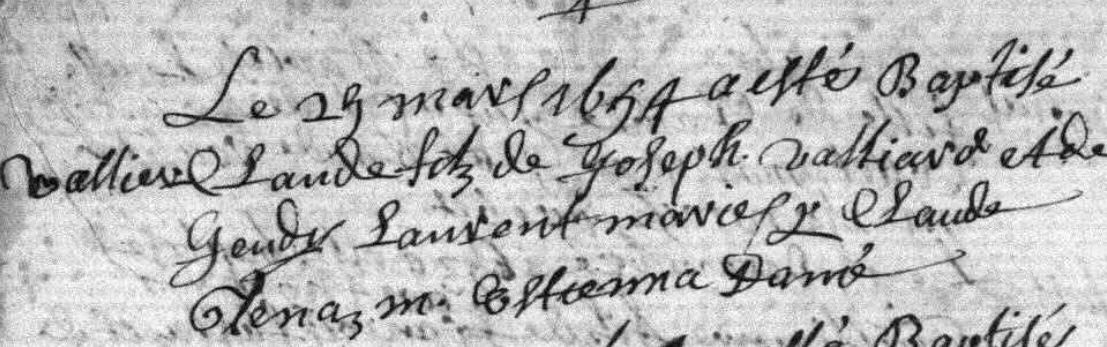 Le 25 mars 1654 a esté Baptisé
vallier Claude filz de Joseph valliard et de
Laurent mariés p Claude
Tenaz m. Estienna Damé
esté Baptisé